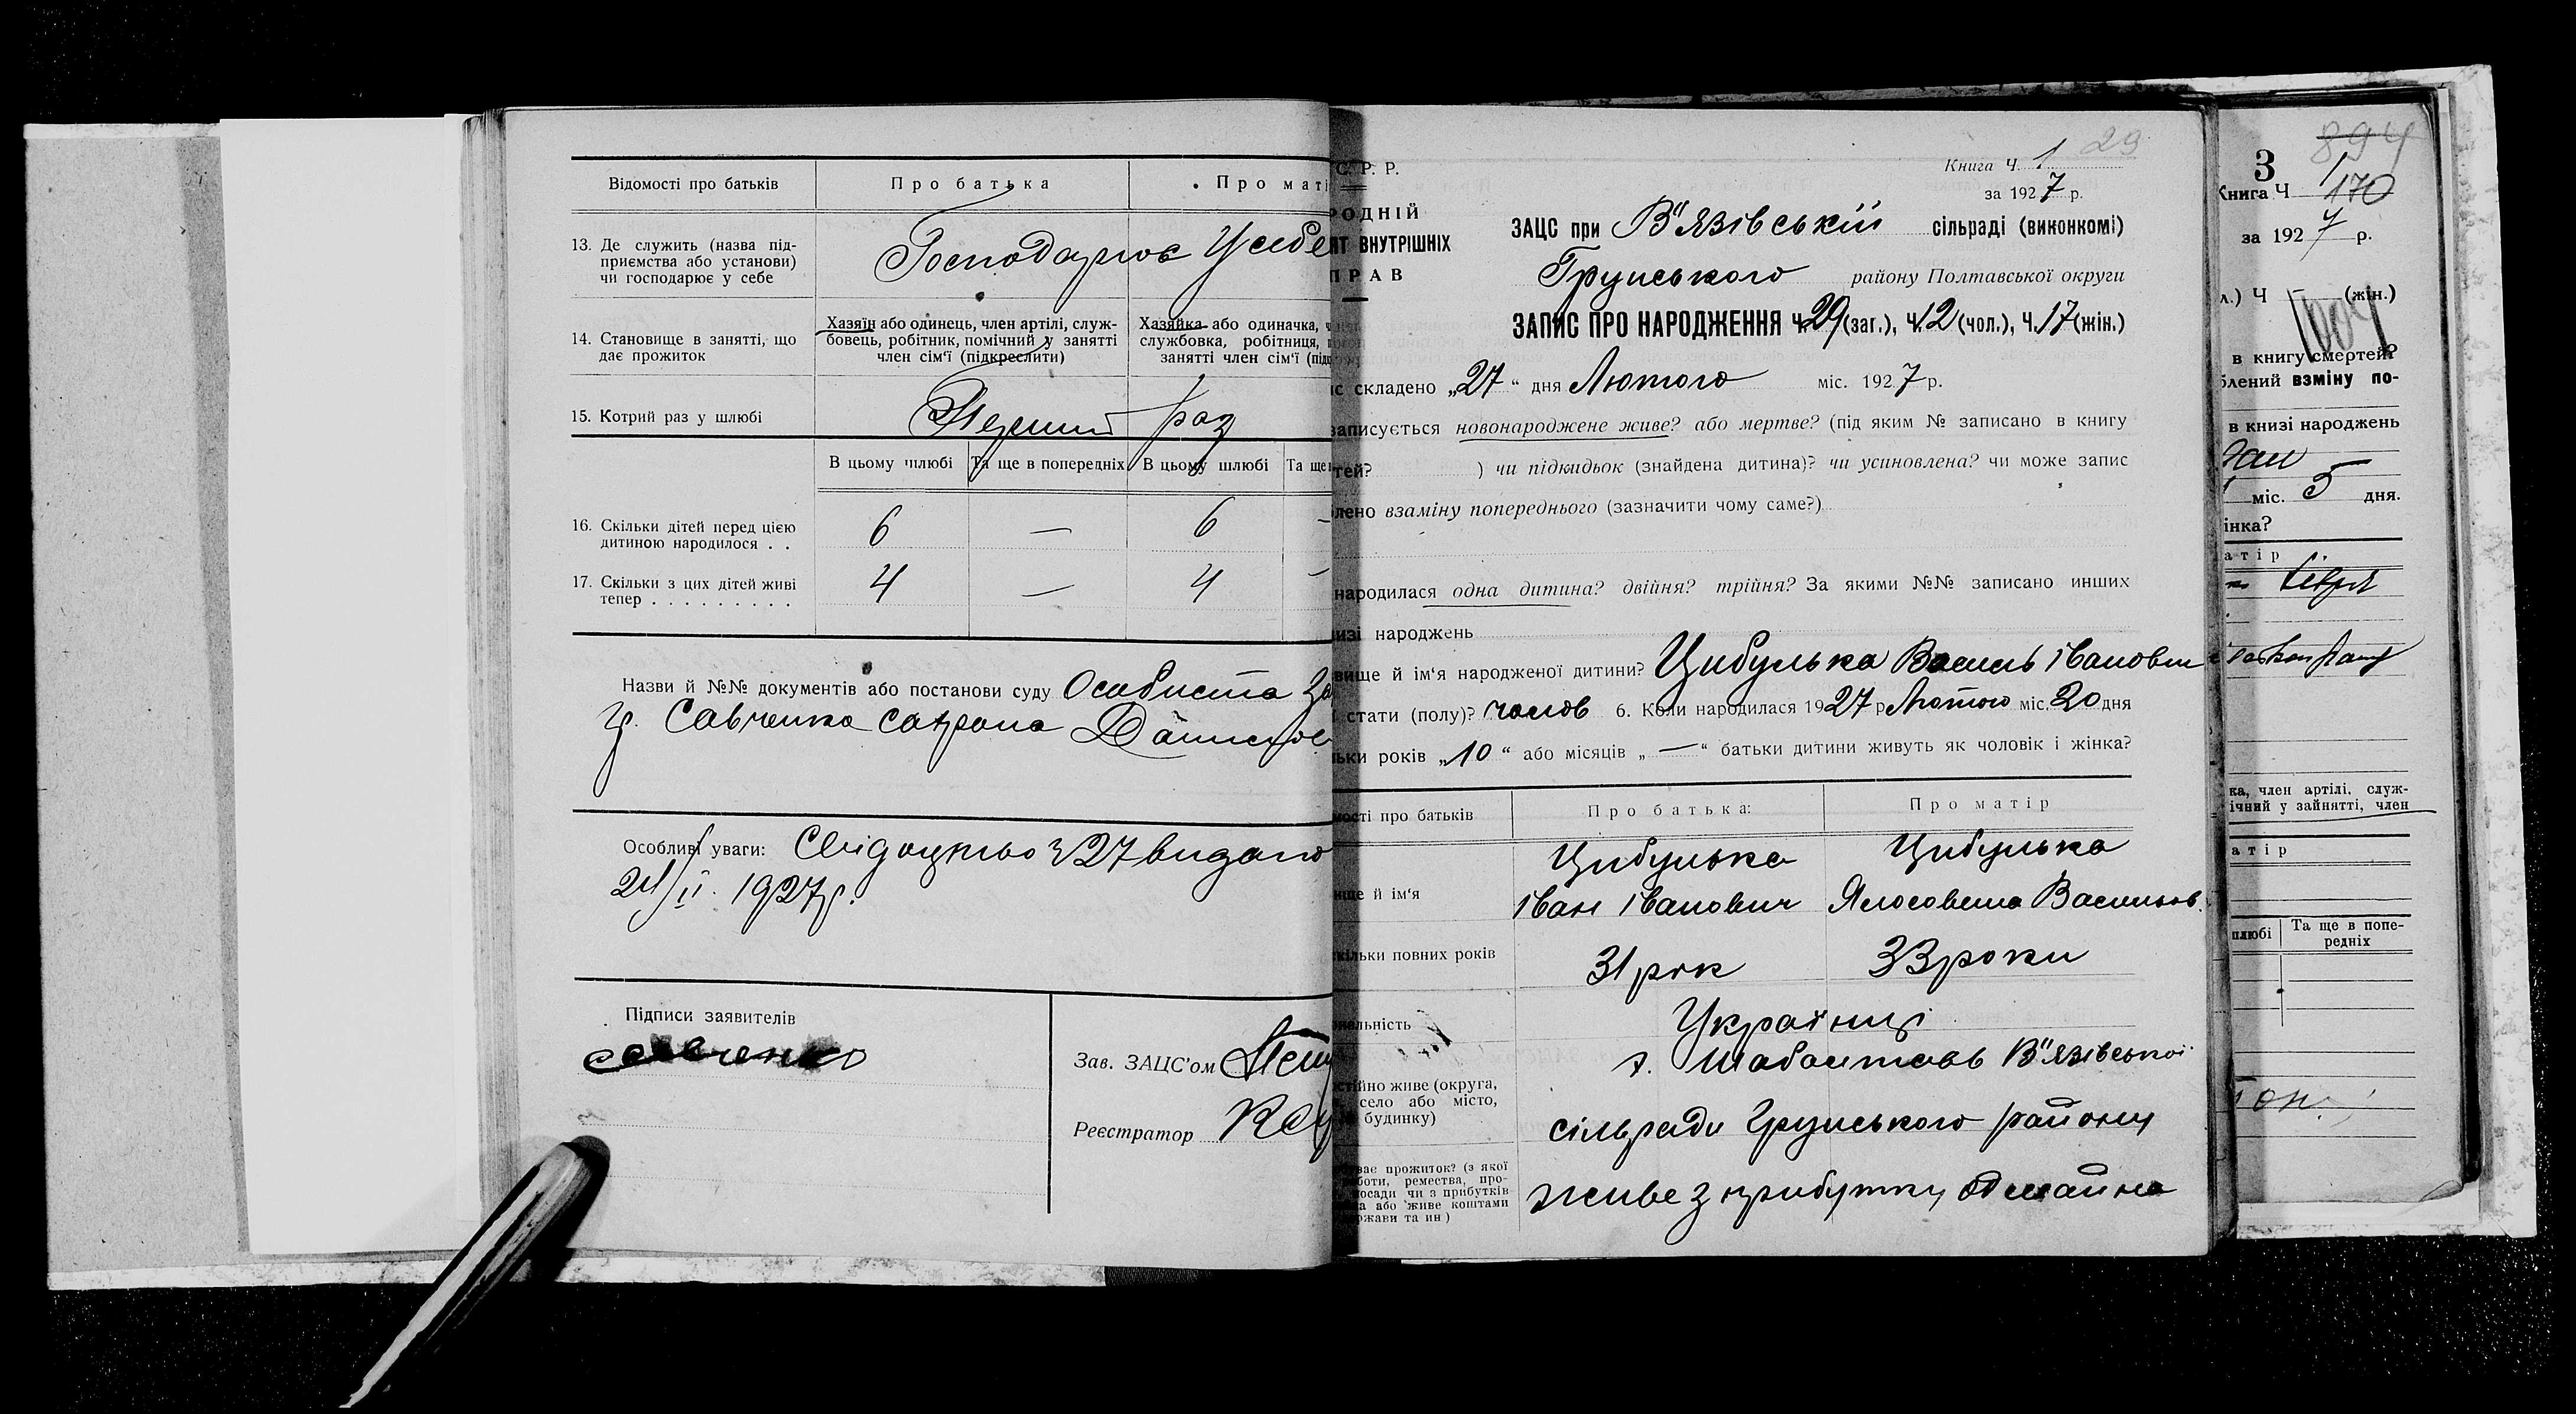 Відомості про батьків
Про батька
Про маті
13. Де служить (назва під-
приємства або установи)
чи господарює у себе
Господарює У себе
14. Становище в занятті, що
дає прожиток
Хазяїн або одинець, член артілі, служ-
бовець, робітник, помічний у занятті
член сім'ї (підкреслити)
Хазяйка або одиначка, ч
службовка, робітниця,
занятті член сім'ї (підк
15. Котрий раз у шлюбі
Перший раз
В цьому шлюбі
Та ще в попередніх
В цьому шлюбі
Та ще
16. Скільки дітей перед цією
дитиною народилося . .
6 — 6 —
17. Скільки з цих дітей живі
тепер . . . . . . . . .
4 — 4 —
Назви й №№ документів або постанови суду Особиста За
гр. Савченка
Особливі уваги: Свідоцтво 27 видано
1927р.
Підписи заявителів
Савченко
Зав. ЗАЦС'ом
Реєстратор
С. Р. Р.
РОДНІЙ
АТ ВНУТРІШНІХ
ПРАВ
29
Книга Ч. 1
за 1927 р.
ЗАЦС при В"язівській сільраді (виконкомі)
Грунського району Полтавської округи
ЗАПИС ПРО НАРОДЖЕННЯ Ч.29 (заг.), Ч.12 (чол.), Ч.17 (жін.)
с складено „27“ дня Лютого міс. 1927 р.
записується новонароджене живе? або мертве? (під яким № записано в книгу
тей? ) чи підкидьок (знайдена дитина)? чи усиновлена? чи може запис
лено взаміну попереднього (зазначити чому саме?)
народилася одна дитина? двійня? трійня? За якими №№ записано инших
изі народжень
вище й ім'я народженої дитини? Цибулька Василь Іванович
стати (полу)? чолов 6. Коли народилася 1927 р Лютого міс. 20 дня
льки років „10“ або місяців „—“ батьки дитини живуть як чоловік і жінка?
мості про батьків
Про батька:
Про матір
ище й ім'я
Цибулька
Іван Іванович
Цибулька
Васильов.
кільки повних років
31 рік
33 роки
нальність
Українці
стійно живе (округа,
село або місто,
будинку)
х. В"язівської
сільради Грунського району
ває прожиток? (з якої
боти, ремества, про-
посади чи з прибутків
а або живе коштами
ржави та ин)
живе з прибутку од майна
894
3
Книга Ч 1
170
за 1927 р.
л.) Ч (жін.)
в книгу смертей?
блений взміну по-
в книзі народжень
міс. 5 дня.
інка?
атір
ка, член артілі, служ-
ічний у зайнятті, член
атір
шлюбі
Та ще в попе-
редніх